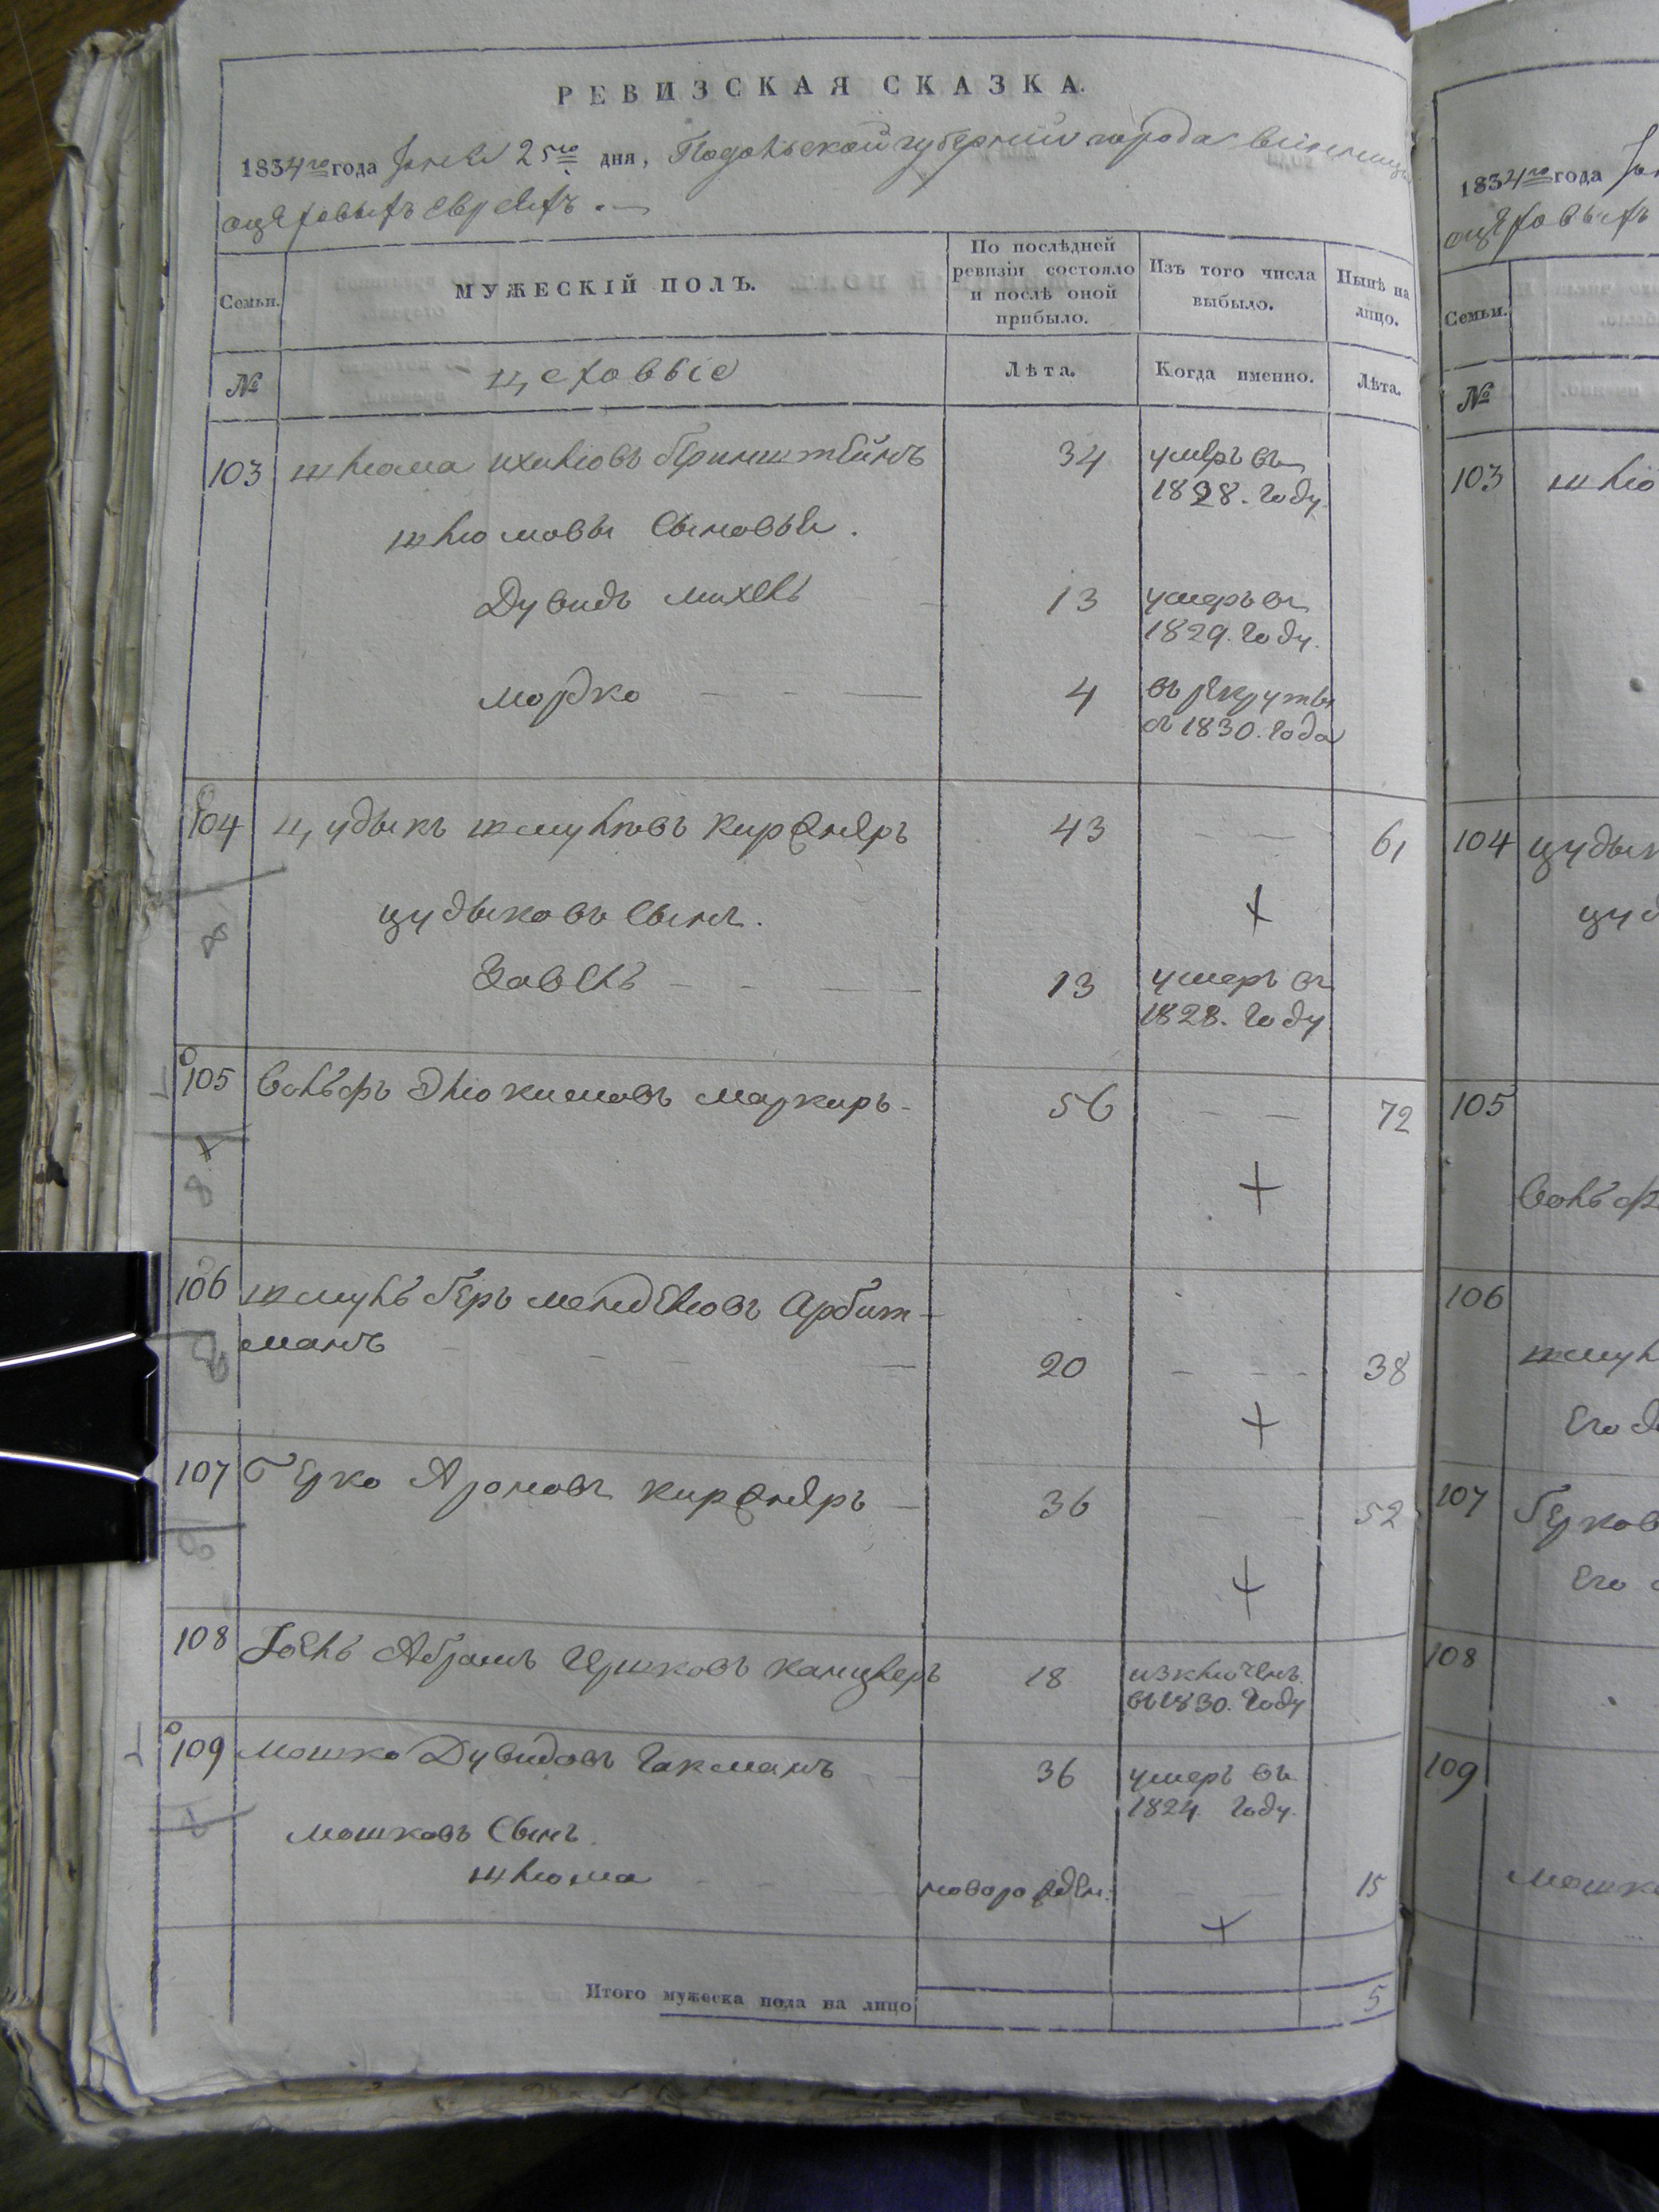 РЕВИЗСКАЯ СКАЗКА.
1834го года 25го дня, Подольской губернии города Винницы
о цеховыхъ евреяхъ.
Семьи.
МУЖЕСКІЙ ПОЛЪ.
По послѣдней
ревизіи состояло
и послѣ оной
прибыло.
Изъ того числа
выбыло.
Нынѣ на
лицо.
№
цеховые
Лѣта.
Когда именно.
Лѣта.
103 шлома ихилювъ беринштейнъ 34 умеръ въ
1828. году
шлюмовы сыновья.
Дувидъ михель 13 умеръ въ
1829. году.
мордко 4 въ рекруты
съ 1830. года
104 цудыкъ шмулювъ киржнеръ 43 61
цудыковъ сынъ.
завель 13 умеръ въ
1828. году
105 вольфъ злюкимовъ маркиръ 56 72
106 шмуль беръ менделювъ Арбит-
манъ 20 38
107 Берко Ароновъ киржнеръ 36 52
108 Іоель Абрамъ Гершковъ канцлеръ 18 изключенъ
въ 1830. году
109 мошко Дувидовъ гакманъ 36 умеръ въ
1824. году.
мошковъ сынъ.
шлюма новорожден: 15
Итого мужеска пола на лицо 5
1834го года
о цеховыхъ
Семьи.
№
103 шлю
104 цудык
цуд
105
вольф
106
шмул
Его
107 Берков
Его
108
109
мошк